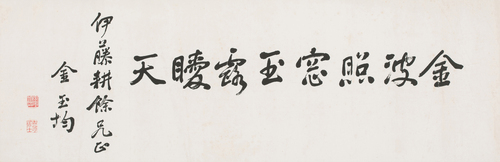 金波照窓玉露曖天
伊藤耕餘兄正
金玉均